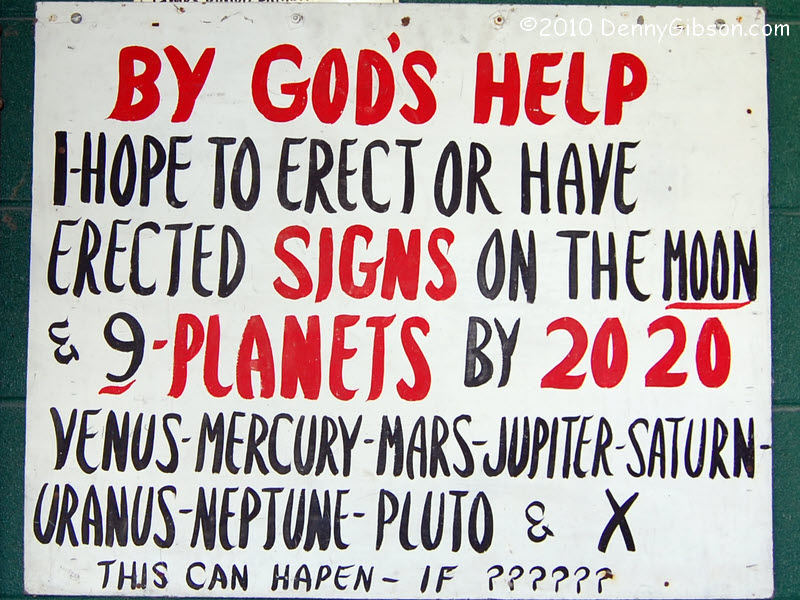 ©2010 DennyGibson.com
BY GOD'S HELP
I-HOPE TO ERECT OR HAVE
ERECTED SIGNS ON THE MOON
& 9-PLANETS BY 2020
VENUS-MERCURY-MARS-JUPITER-SATURN-
URANUS-NEPTUNE-PLUTO & X
THIS CAN HAPEN- IF ??????